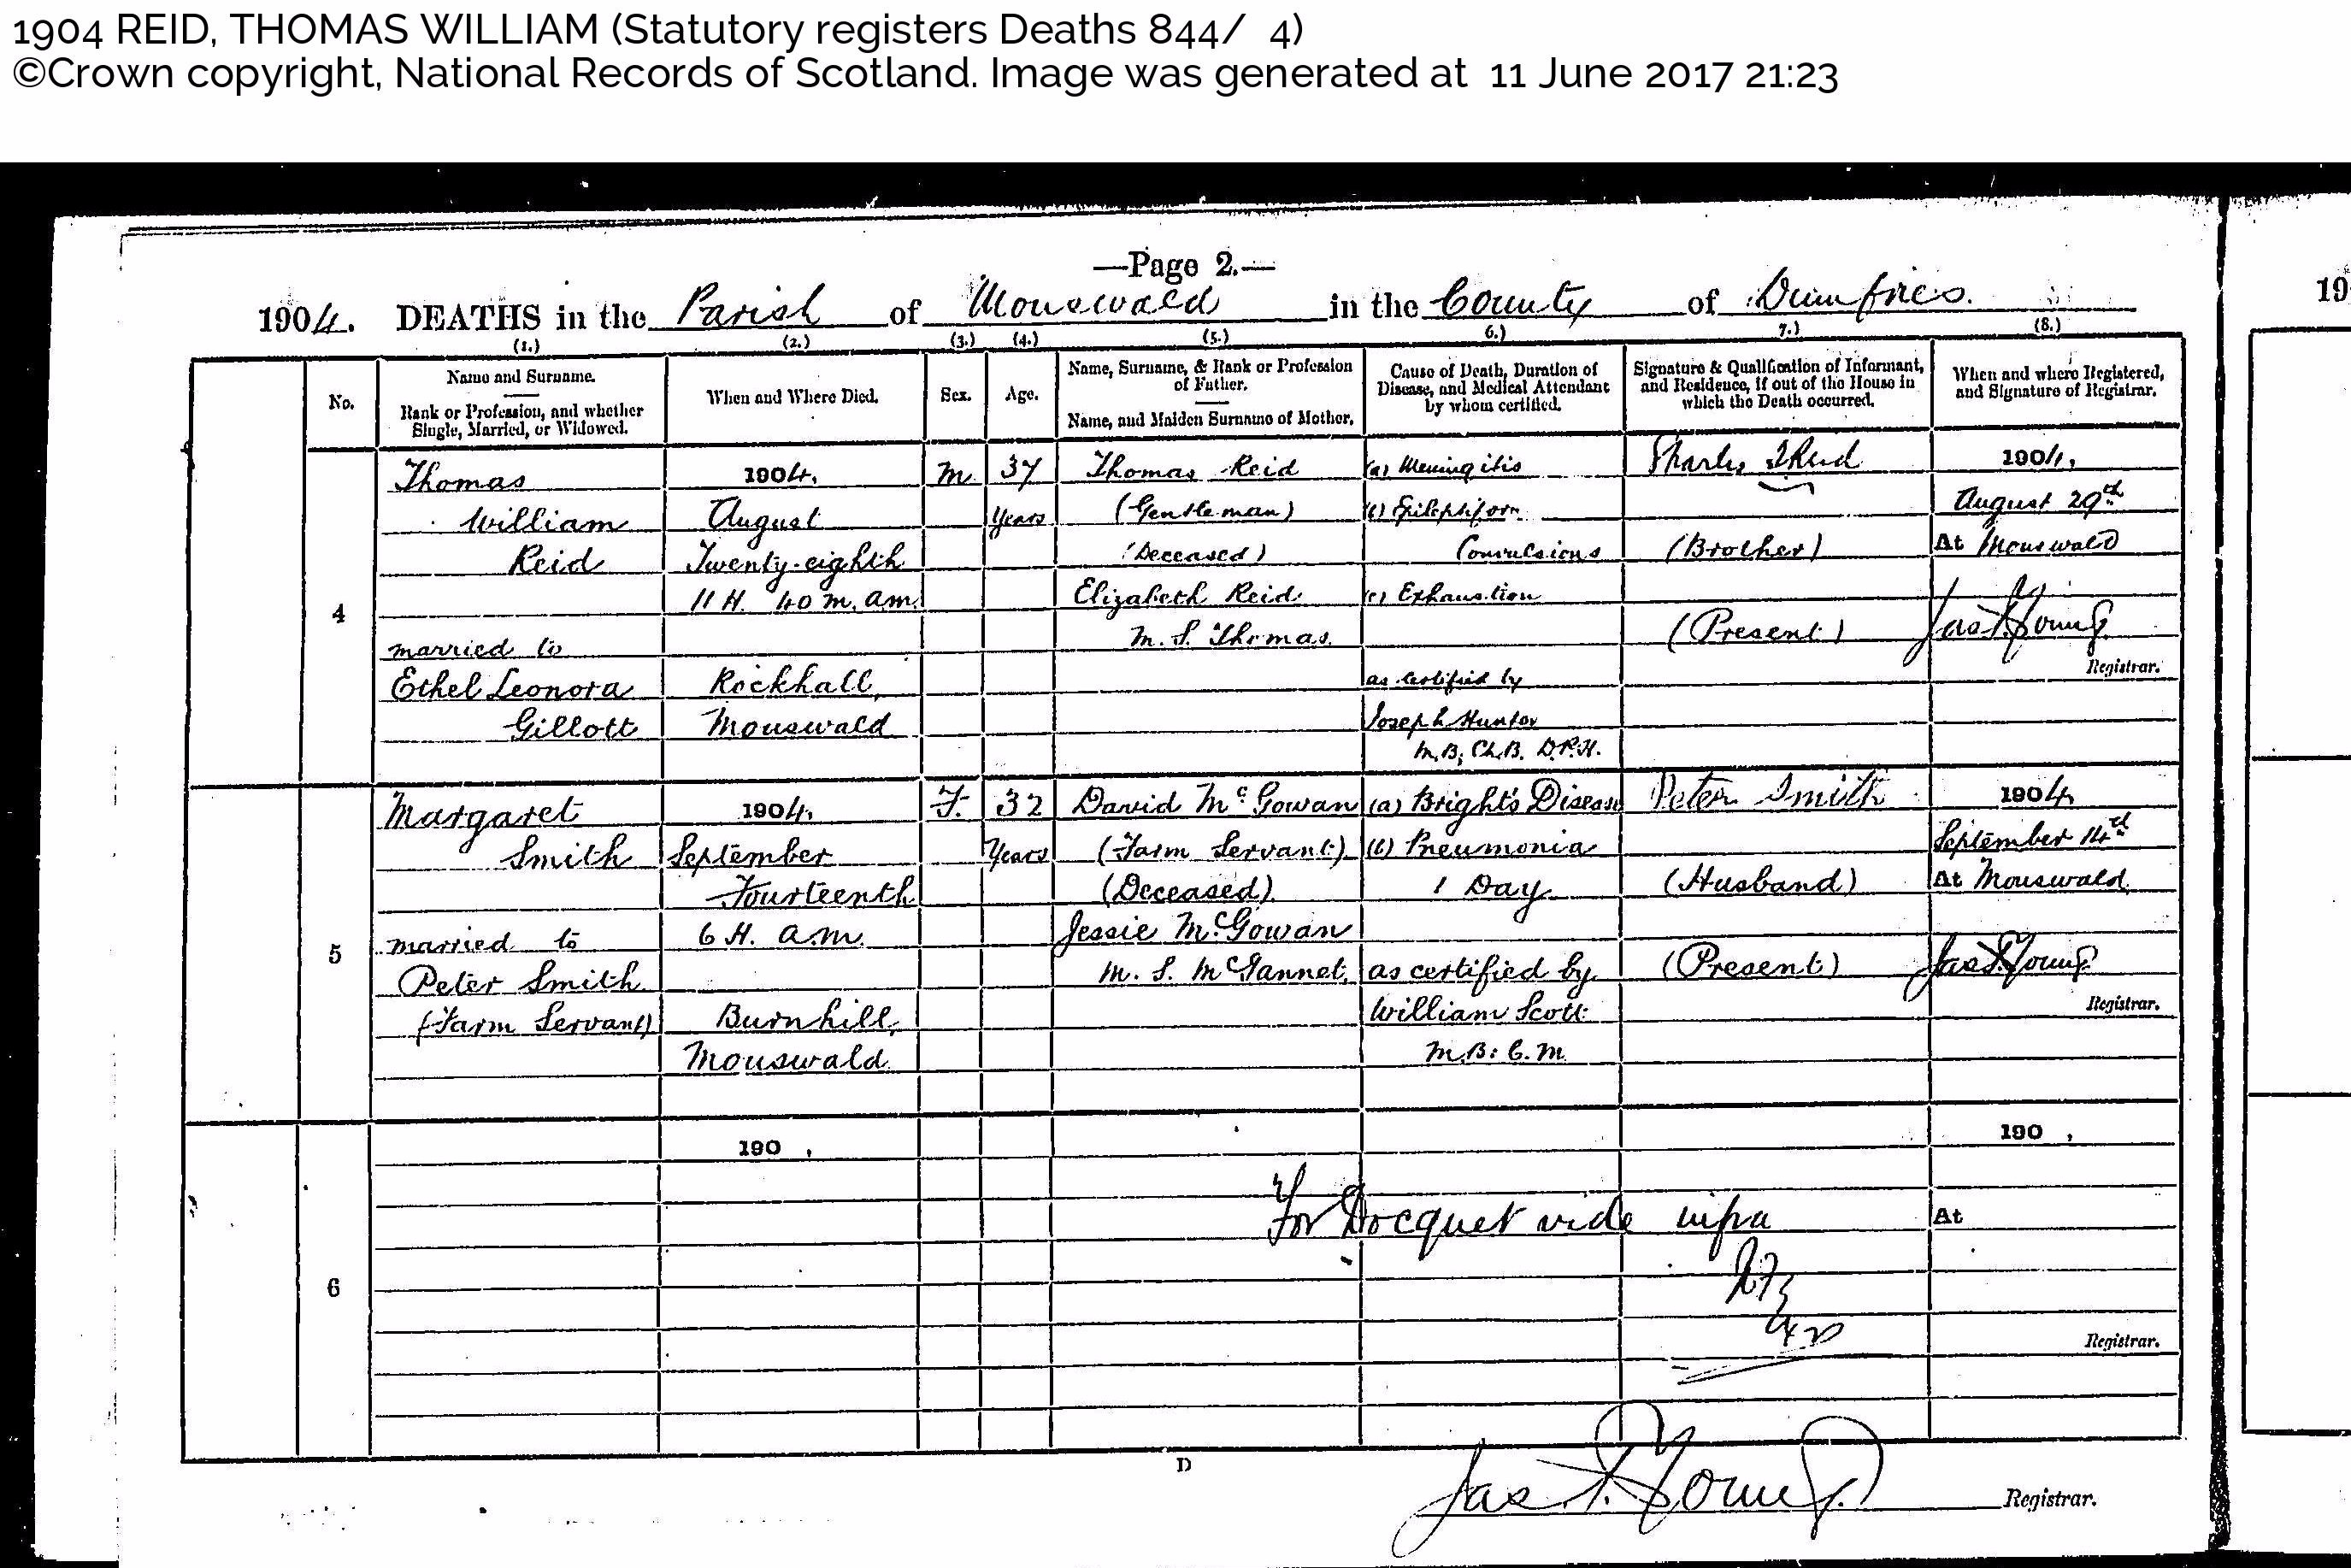 1904 REID, THOMAS WILLIAM (Statutory registers Deaths 844/ 4)
©Crown copyright, National Records of Scotland. Image was generated at 11 June 2017 21:23
—Page 2.—
1904. DEATHS in the Parish of Mouswald in the County of Dumfries.
(1.) (2.) (3.) (4.) (5.) 6.) 7.) (8.)
No.
Name and Surname.
Rank or Profession, and whether
Single, Married, or Widowed.
When and Where Died.
Sex.
Age.
Name, Surname, & Rank or Profession
of Father.
Name, and Maiden Surname of Mother.
Cause of Death, Duration of
Disease, and Medical Attendant
by whom certified.
Signature & Qualification of Informant,
and Residence, if out of the House in
which the Death occurred.
When and where Registered,
and Signature of Registrar.
4
Thomas
William
Reid
married to
Ethel Leonora
Gillott
1904.
August
Twenty-eighth
11 H. 40 m. a.m.
Rockhall,
Mouswald
M.
37
Years
Thomas Reid
(Gentleman)
(Deceased)
Elizabeth Reid
M. S. Thomas.
(a) Meningitis
(b) Epileptiform
Convulsions
(c) Exhaustion
as certified by
Joseph Hunter
M.B; Ch.B. D.P.H.
Charles Reid
(Brother)
(Present)
1904,
August 29th
At Mouswald
Jas. T. Young
Registrar.
5
Margaret
Smith
married to
Peter Smith
(Farm Servant)
1904.
September
Fourteenth
6 H. a.m.
Burnhill,
Mouswald
F.
32
Years
David McGowan
(Farm Servant)
(Deceased)
Jessie McGowan
M. S.
(a) Bright's Disease
(b) Pneumonia
1 Day
as certified by
William Scott
M.B: C.M.
Peter Smith
(Husband)
(Present)
1904
September 14th
At Mouswald.
Jas. T. Young
Registrar.
6
190 ,
190 ,
At
For Docquet vide infra
Registrar.
D
Jas. T. Young
Registrar.
19